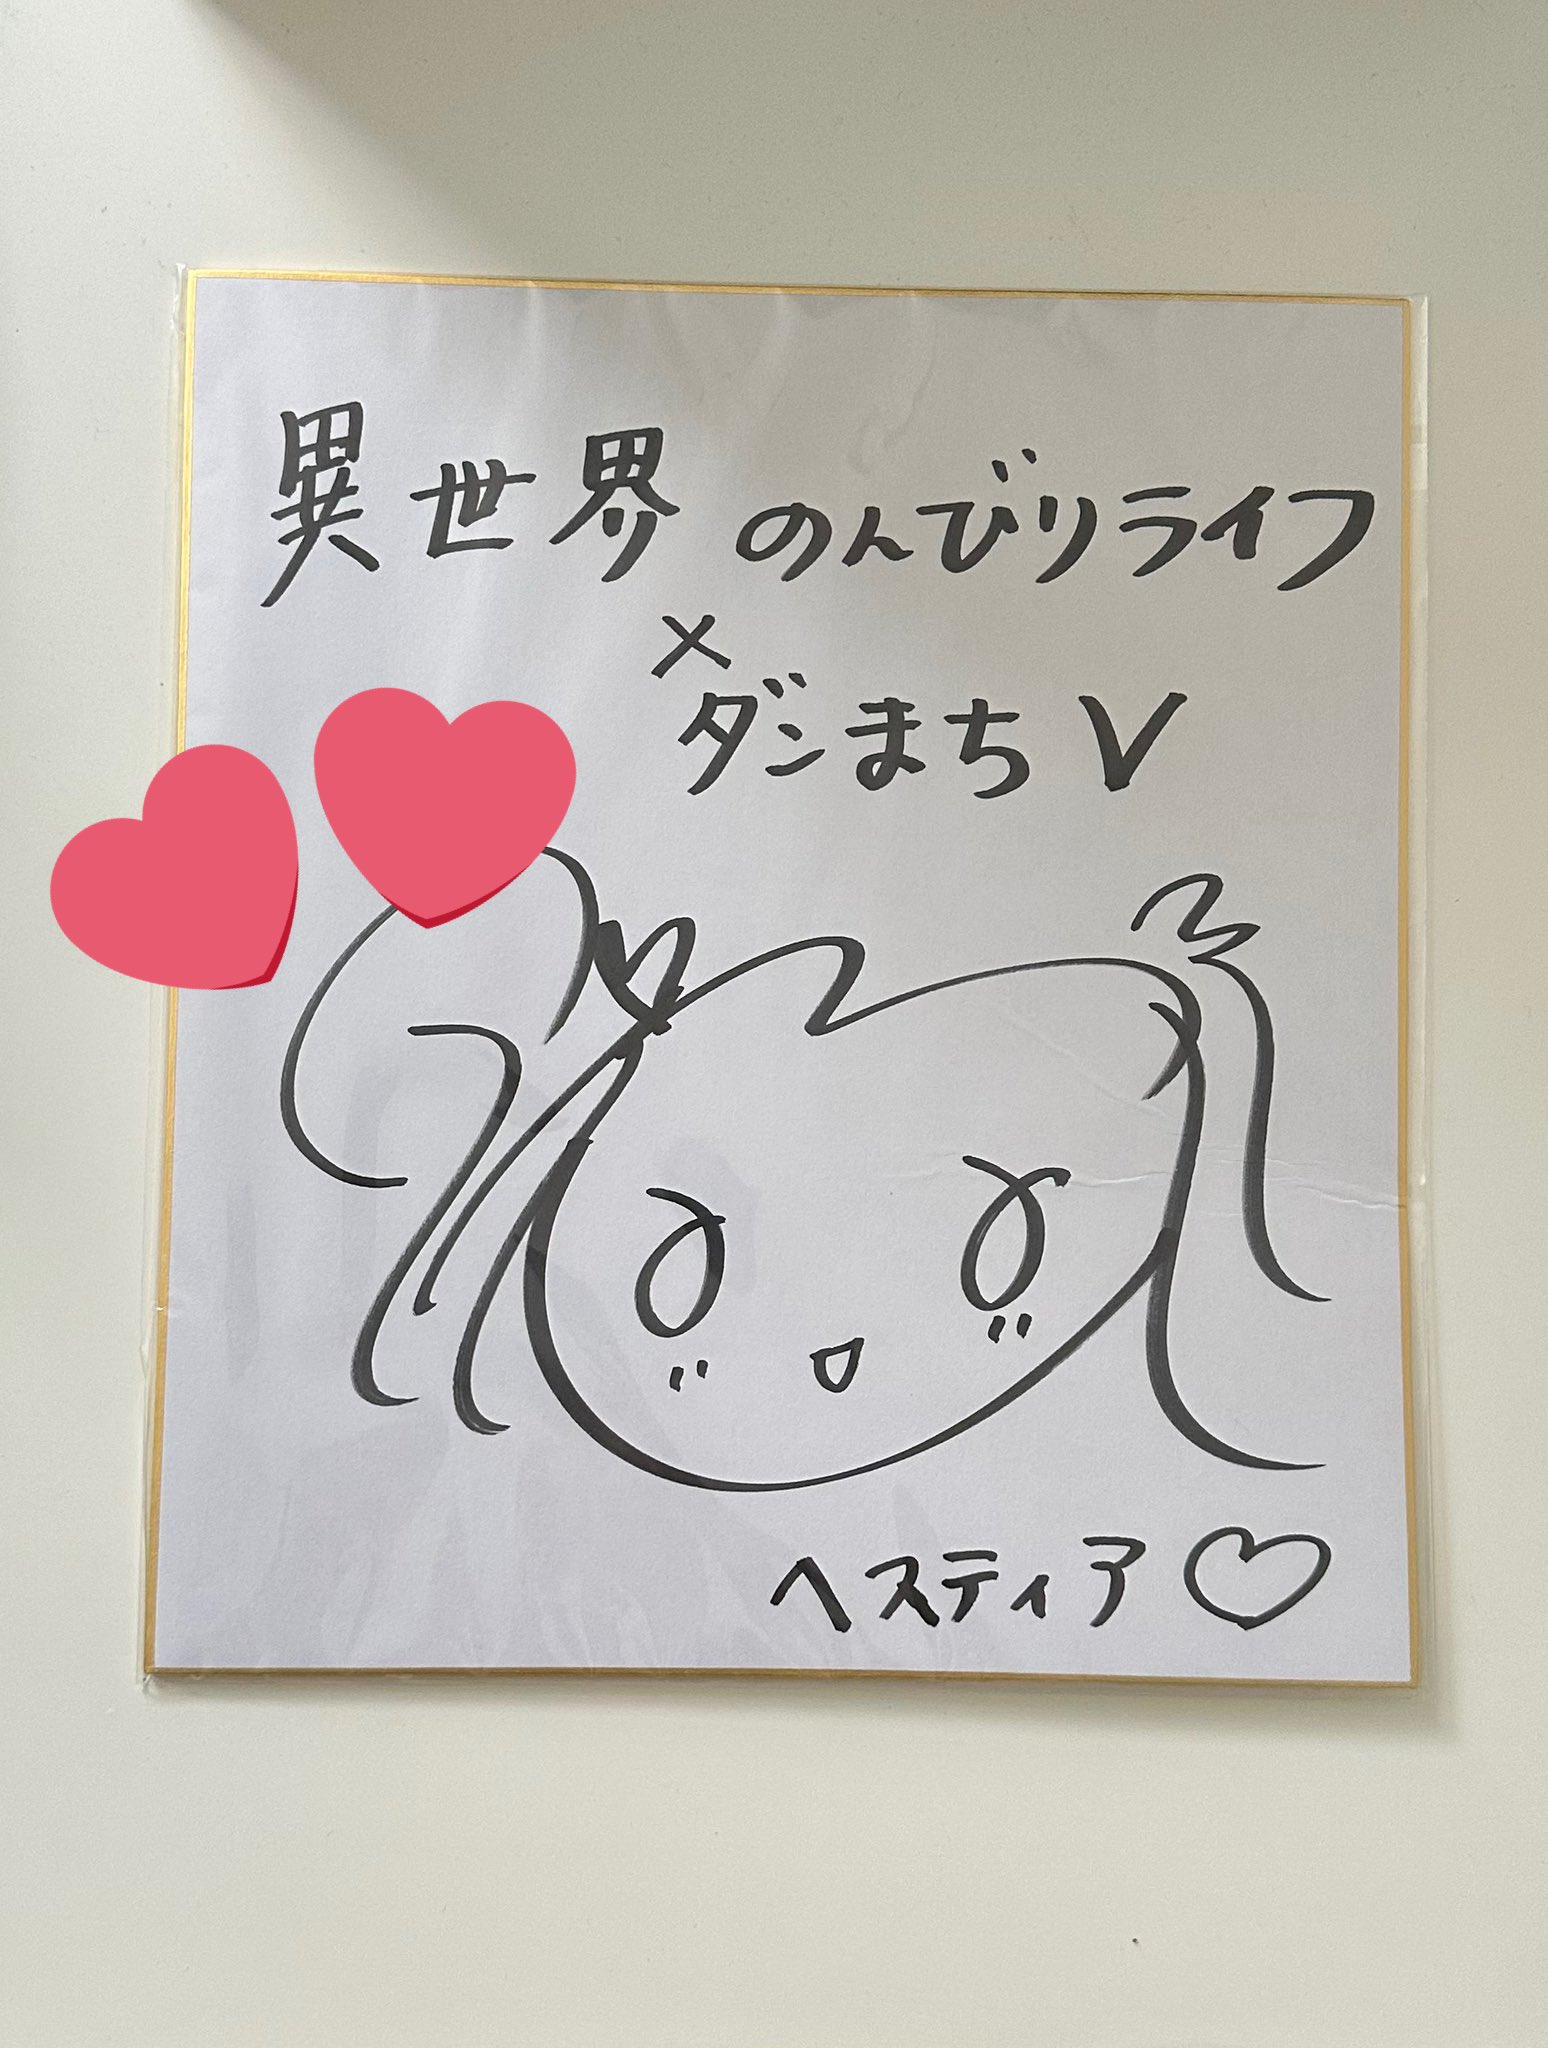 異世界のんびりライフ
×
ダンまちV
ヘスティア♡